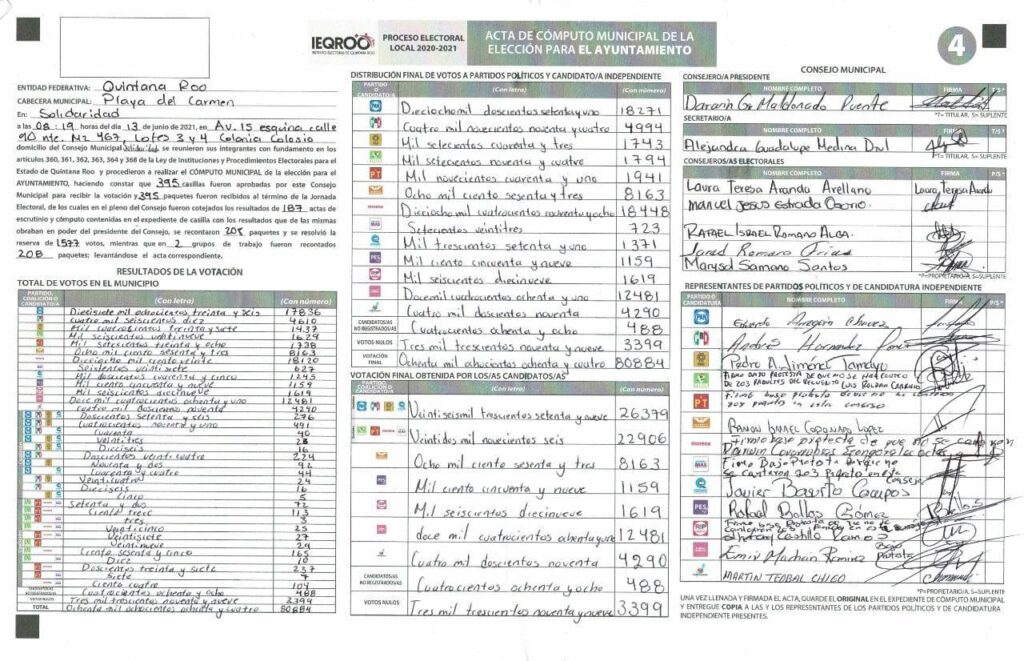 IEQROO
INSTITUTO ELECTORAL DE QUINTANA ROO
PROCESO ELECTORAL
LOCAL 2020-2021
ACTA DE CÓMPUTO MUNICIPAL DE LA
ELECCIÓN PARA EL AYUNTAMIENTO
4
ENTIDAD FEDERATIVA: Quintana Roo
CABECERA MUNICIPAL: Playa del Carmen
En: Solidaridad
a las 08:19 horas del día 13 de junio de 2021, en Av. 15 esquina calle
90 nte. Mz 467, Lotes 3 y 4 Colonia Colosio
domicilio del Consejo Municipal Solidaridad, se reunieron sus integrantes con fundamento en los
artículos 360, 361, 362, 363, 364 y 368 de la Ley de Instituciones y Procedimientos Electorales para el
Estado de Quintana Roo y procedieron a realizar el CÓMPUTO MUNICIPAL de la elección para el
AYUNTAMIENTO, haciendo constar que 395 casillas fueron aprobadas por este Consejo
Municipal para recibir la votación y 395 paquetes fueron recibidos al término de la Jornada
Electoral, de los cuales en el pleno del Consejo fueron cotejados los resultados de 187 actas de
escrutinio y cómputo contenidas en el expediente de casilla con los resultados que de las mismas
obraban en poder del presidente del Consejo, se recontaron 208 paquetes y se resolvió la
reserva de 1577 votos, mientras que en 2 grupos de trabajo fueron recontados
208 paquetes; levantándose el acta correspondiente.
RESULTADOS DE LA VOTACIÓN
TOTAL DE VOTOS EN EL MUNICIPIO
PARTIDO, COALICIÓN O CANDIDATO/A (Con letra) (Con número)
Diecisiete mil ochocientos treinta y seis 17836
Cuatro mil seiscientos diez 4610
Mil cuatrocientos treinta y siete 1437
Mil seiscientos veintinueve 1629
Mil setecientos treinta y ocho 1738
Ocho mil ciento sesenta y tres 8163
Dieciocho mil ciento veinte 18120
Seiscientos veintisiete 627
Mil doscientos cuarenta y cinco 1245
Mil ciento cincuenta y nueve 1159
Mil seiscientos diecinueve 1619
Doce mil cuatrocientos ochenta y uno 12481
Cuatro mil doscientos noventa 4290
Doscientos setenta y seis 276
Cuatrocientos noventa y uno 491
Cuarenta 40
Veintitres
Dieciseis 16
Doscientos veinticuatro 224
Noventa y dos 92
Cuarenta y cuatro 44
Veinticuatro 24
Dieciseis 16
Cinco 5
Setenta y dos 72
Ciento trece 113
Tres 3
Veinticinco 25
Veintisiete 27
Veintinueve 29
Ciento sesenta y cinco 165
Diez 10
Doscientos treinta y siete 237
Siete 7
Ciento cuatro 104
Cuatrocientos ochenta y ocho 488
Tres mil trescientos noventa y nueve 3399
TOTAL Ochenta mil ochocientos ochenta y cuatro 80884
DISTRIBUCIÓN FINAL DE VOTOS A PARTIDOS POLÍTICOS Y CANDIDATO/A INDEPENDIENTE
PARTIDO O CANDIDATO/A (Con letra) (Con número)
Dieciochomil doscientos setenta y uno 18271
Cuatro mil novecientos noventa y cuatro 4994
Mil setecientos cuarenta y tres 1743
Mil setecientos noventa y cuatro 1794
PT Mil novecientos cuarenta y uno 1941
Ocho mil ciento sesenta y tres 8163
morena Dieciocho mil cuatrocientos cuarenta y ocho 18448
MAS Setecientos veintitres 723
Mil trescientos setenta y uno 1371
PES Mil ciento cincuenta y nueve 1159
Mil seiscientos diecinueve 1619
Docemil cuatrocientos ochenta y uno 12481
Cuatro mil doscientos noventa 4290
CANDIDATOS/AS NO REGISTRADOS/AS Cuatrocientos ochenta y ocho 488
VOTOS NULOS Tres mil trescientos noventa y nueve 3399
VOTACIÓN FINAL Ochenta mil ochocientos ochenta y cuatro 80884
VOTACIÓN FINAL OBTENIDA POR LOS/AS CANDIDATOS/AS
(Con letra) (Con número)
Veintiseismil trescientos setenta y nueve 26379
Veintidos mil novecientos seis 22906
Ocho mil ciento sesenta y tres 8163
Mil ciento cincuenta y nueve 1159
Mil seiscientos diecinueve 1619
doce mil cuatrocientos ochenta y uno 12481
Cuatro mil doscientos noventa 4290
CANDIDATOS/AS NO REGISTRADOS/AS Cuatrocientos ochenta y ocho 488
VOTOS NULOS Tres mil trescientos noventa y nueve 3399
CONSEJO MUNICIPAL
CONSEJERO/A PRESIDENTE
NOMBRE COMPLETO FIRMA T/S*
Maldonado Puente
*T= TITULAR, S= SUPLENTE
SECRETARIO/A
NOMBRE COMPLETO FIRMA T/S*
Alejandra Guadalupe Medina
*T= TITULAR, S= SUPLENTE
CONSEJEROS/AS ELECTORALES
NOMBRE COMPLETO FIRMA P/S*
Laura Teresa Arellano
Manuel Jesus Estrada
RAFAEL ISRAEL ROMANO ALBA.
Jared Romano
Marysol Samano Santos
*P=PROPIETARIO/A, S=SUPLENTE
REPRESENTANTES DE PARTIDOS POLÍTICOS Y DE CANDIDATURA INDEPENDIENTE
PARTIDO O CANDIDATO/A NOMBRE COMPLETO FIRMA P/S*
PAN Eduardo
PRI Hernandez
Pedro A. Jimenez Tamayo
PT
RAMON ISMAEL CORONADO LOPEZ
morena Firmo bajo protesta de que no se
MAS Firmo Bajo Protesta
Javier Basurto Campos
PES Rafael Ballos Gómez
Castillo Ramos
Emir Machain Ramirez
MARTIN TEOBAL CHIGO
*P=PROPIETARIO/A, S=SUPLENTE
UNA VEZ LLENADA Y FIRMADA EL ACTA, GUARDE EL ORIGINAL EN EL EXPEDIENTE DE CÓMPUTO MUNICIPAL
Y ENTREGUE COPIA A LAS Y LOS REPRESENTANTES DE LOS PARTIDOS POLÍTICOS Y DE CANDIDATURA
INDEPENDIENTE PRESENTES.